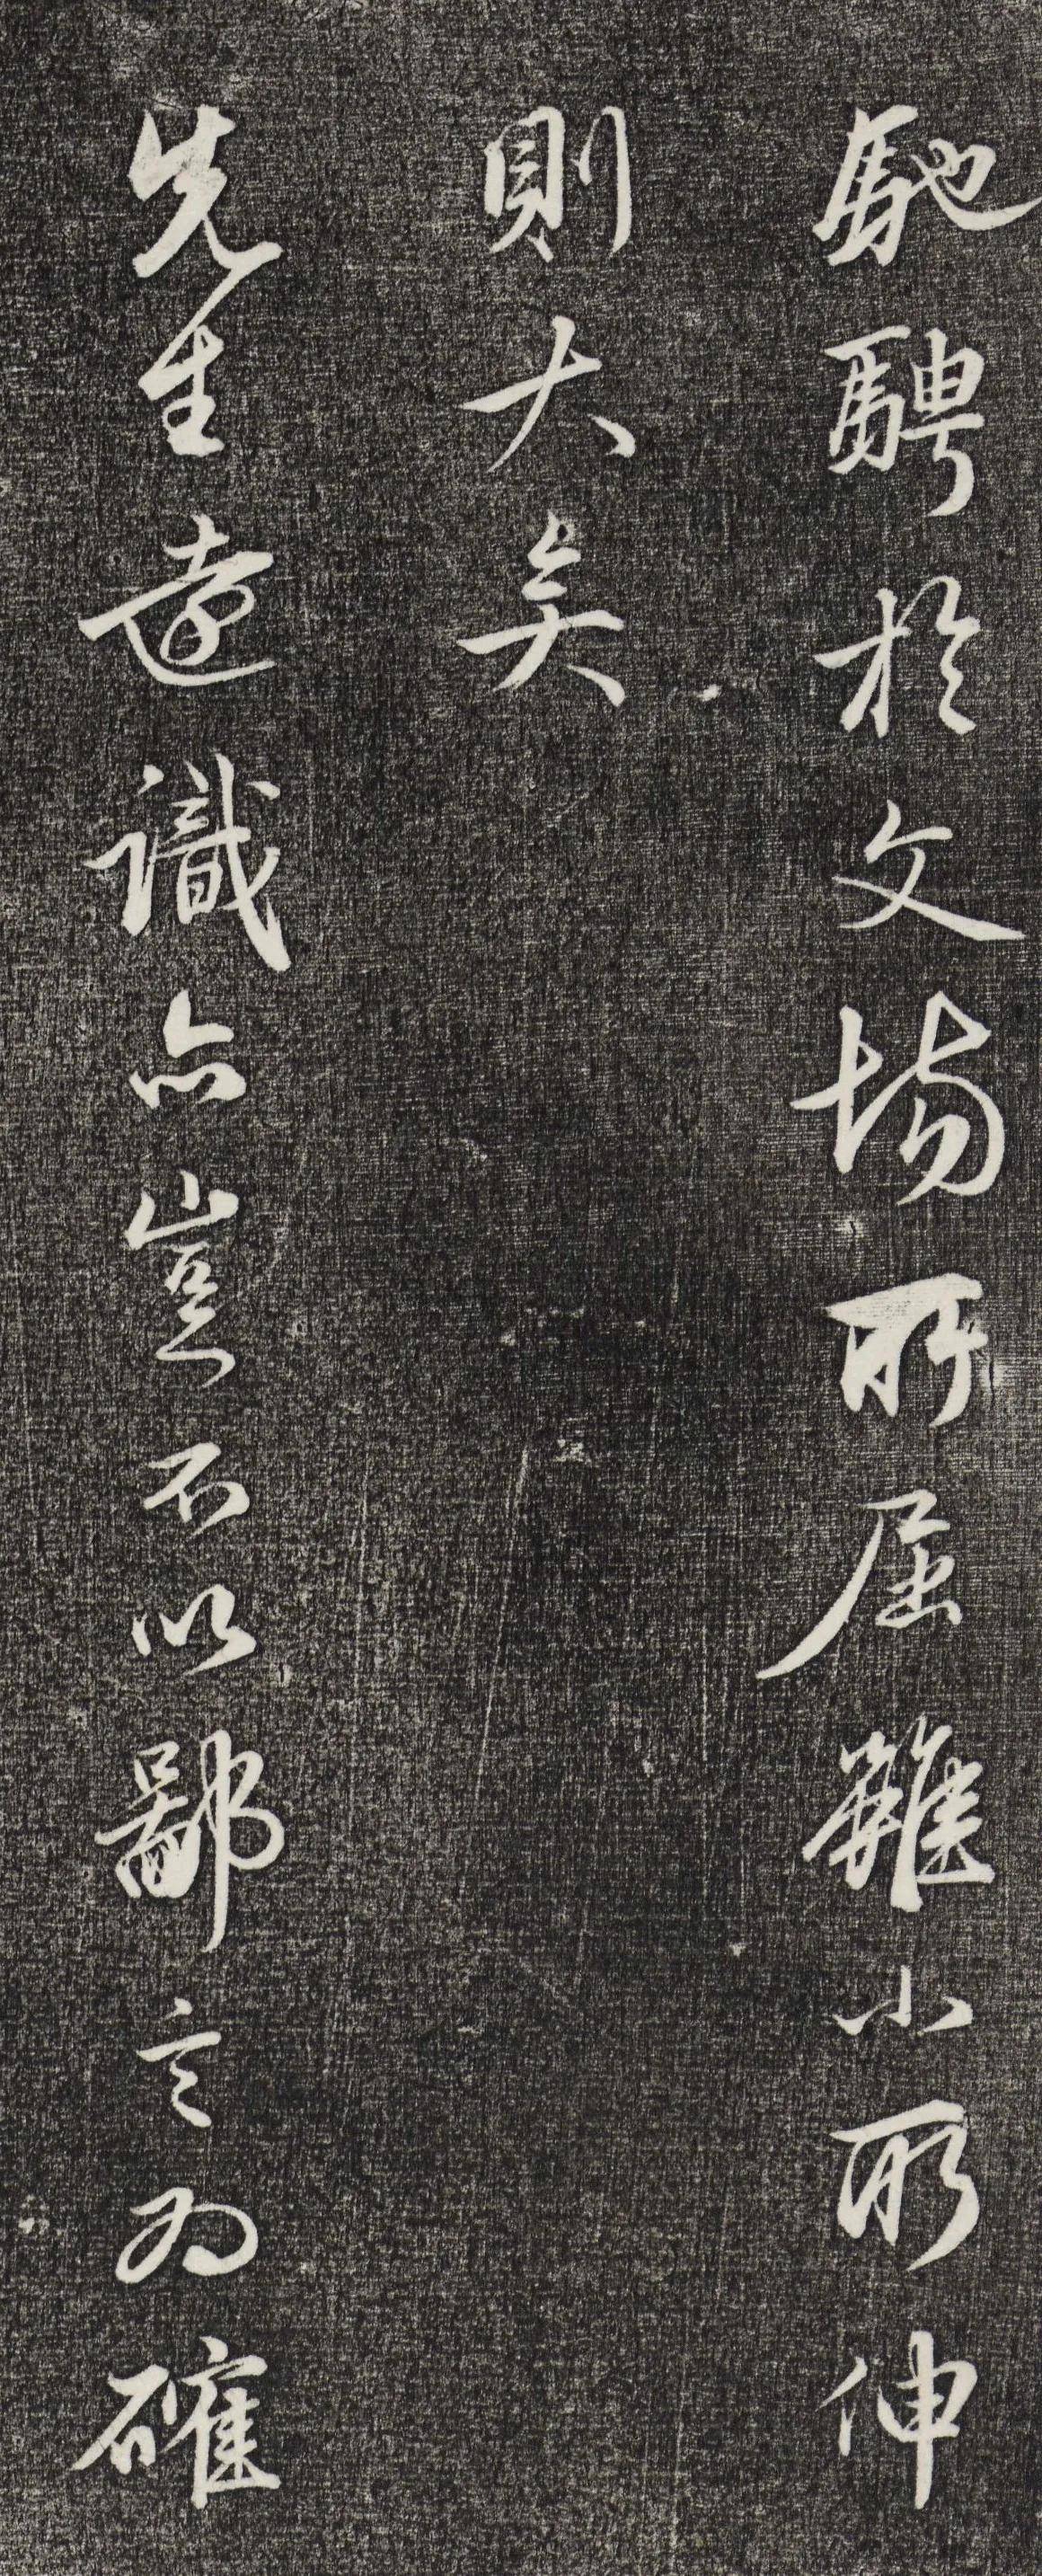 馳騁於文場所屈雖小所伸
則大矣
先生遠識亦豈不以鄙言為確